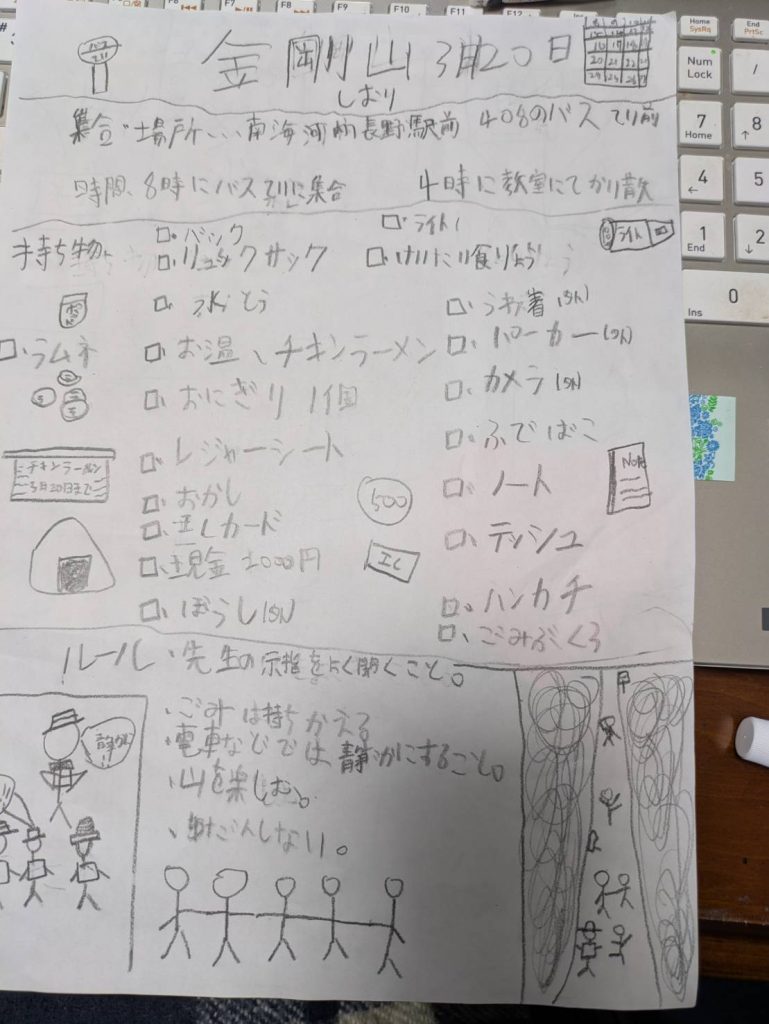 金剛山 3月20日
しおり
集合場所...南海河内長野駅前 408のバスてい前
時間、8時にバスていに集合 4時に教室にてかい散
手持ち物
□バック
□リュックサック
□水とう
□ラムネ
□お温、チキンラーメン
□おにぎり 1個
□レジャーシート
□おかし
□ICカード
□現金2000円
□ぼうし(SN)
□ライト
□けいたい食りょう
□うわ着(SN)
□パーカー(SN)
□カメラ(SN)
□ふでばこ
□ノート
□テッシュ
□ハンカチ
□ごみぶくろ
ライト
チキンラーメン
3月20日まで
500
IC
Note
ルール・先生の示指をよく聞くこと。
・ごみは持ちかえる
・電車などでは静かにすること。
・山を楽しむ。
・けんしない。
Home
SysRq
End
PrtSc
Num
Lock
/
7
Home
8
4
5
1
End
2
0
Ins
F7
F8
F9
F10
F11
F12